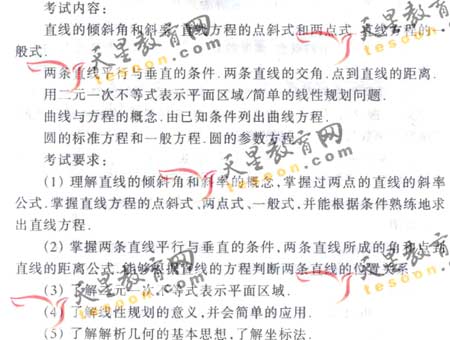 考试内容:
直线的倾斜角和斜率.直线方程的点斜式和两点式.直线方程的一
般式.
两条直线平行与垂直的条件.两条直线的交角.点到直线的距离.
用二元一次不等式表示平面区域/简单的线性规划问题.
曲线与方程的概念.由已知条件列出曲线方程.
圆的标准方程和一般方程.圆的参数方程.
考试要求:
(1) 理解直线的倾斜角和斜率的概念,掌握过两点的直线的斜率
公式.掌握直线方程的点斜式、两点式、一般式,并能根据条件熟练地求
出直线方程.
(2) 掌握两条直线平行与垂直的条件,两条直线所成的角和点到
直线的距离公式.能够根据直线的方程判断两条直线的位置关系.
(3) 了解二元一次不等式表示平面区域.
(4) 了解线性规划的意义,并会简单的应用.
(5) 了解解析几何的基本思想,了解坐标法.
天星教育网
tesoon.com
天星教育网
tesoon.com
天星教育网
tesoon.com
天星教育网
tesoon.com
天星教育网
tesoon.com